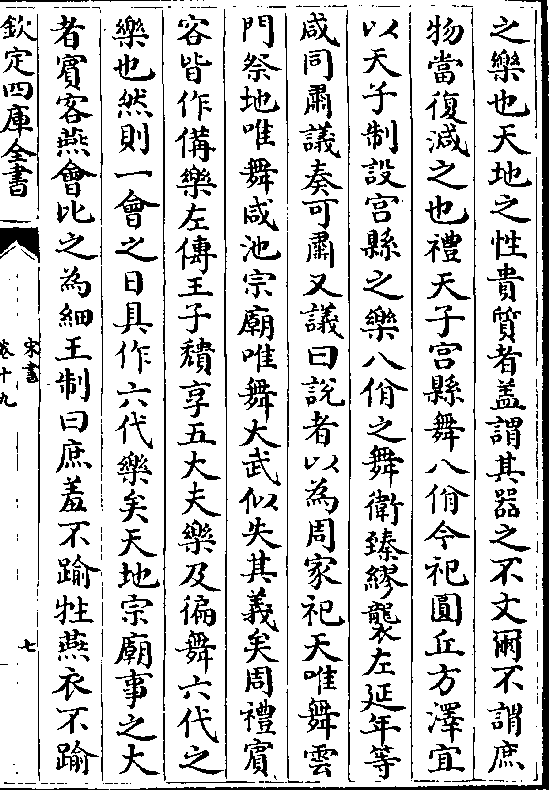 之樂也天地之性貴質者蓋謂其器之不文爾不謂庶
物當復減之也禮天子宮縣舞八佾今祀圓丘方澤宜
以天子制設宮縣之樂八佾之舞衛臻繆襲左延年等
咸同肅議奏可肅又議曰說者以為周家祀天唯舞雲
門祭地唯舞咸池宗廟唯舞大武似失其義矣周禮賓
客皆作備樂左傳王子穨享五大夫樂及徧舞六代之
樂也然則一會之日具作六代樂矣天地宗廟事之大
者賓客燕會比之為細王制曰庶羞不踰牲燕衣不踰
欽定四庫全書
宋書
卷十九
七